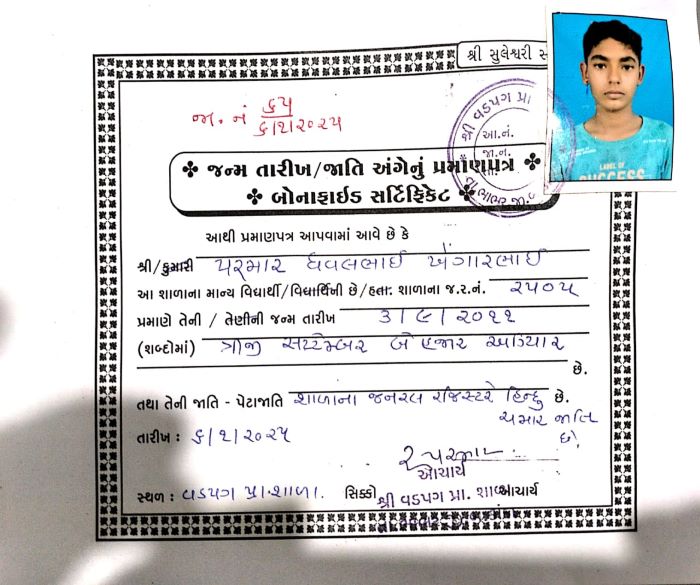 શ્રી સુલેશ્વરી
જા. નં ૬૫
૬/૧/૨૦૨૫
શ્રી વડપગ પ્રા
આ.નં.
જા.ન.
ભાભર જી.
❖ જન્મ તારીખ/જાતિ અંગેનું પ્રમાણપત્ર ❖
❖ બોનાફાઈડ સર્ટિફિકેટ ❖
LABEL OF
SUCCESS
આથી પ્રમાણપત્ર આપવામાં આવે છે કે
શ્રી/કુમારી પરમાર ધવલભાઈ ખેંગારભાઈ
આ શાળાના માન્ય વિદ્યાર્થી/વિદ્યાર્થિની છે/હતા. શાળાના જ.ર.નં. ૨૫૦૫
પ્રમાણે તેની / તેણીની જન્મ તારીખ ૩/૯/૨૦૧૧
(શબ્દોમાં) ત્રીજી સપ્ટેમ્બર બે હજાર અગિયાર
છે.
તથા તેની જાતિ - પેટાજાતિ શાળાના જનરલ રજિસ્ટરે હિન્દુ છે.
ચમાર જાતિ
છે.
તારીખ : ૬/૧/૨૦૨૫
આચાર્ય
સ્થળ : વડપગ પ્રા.શાળા. સિક્કો શ્રી વડપગ પ્રા. શાળા આચાર્ય